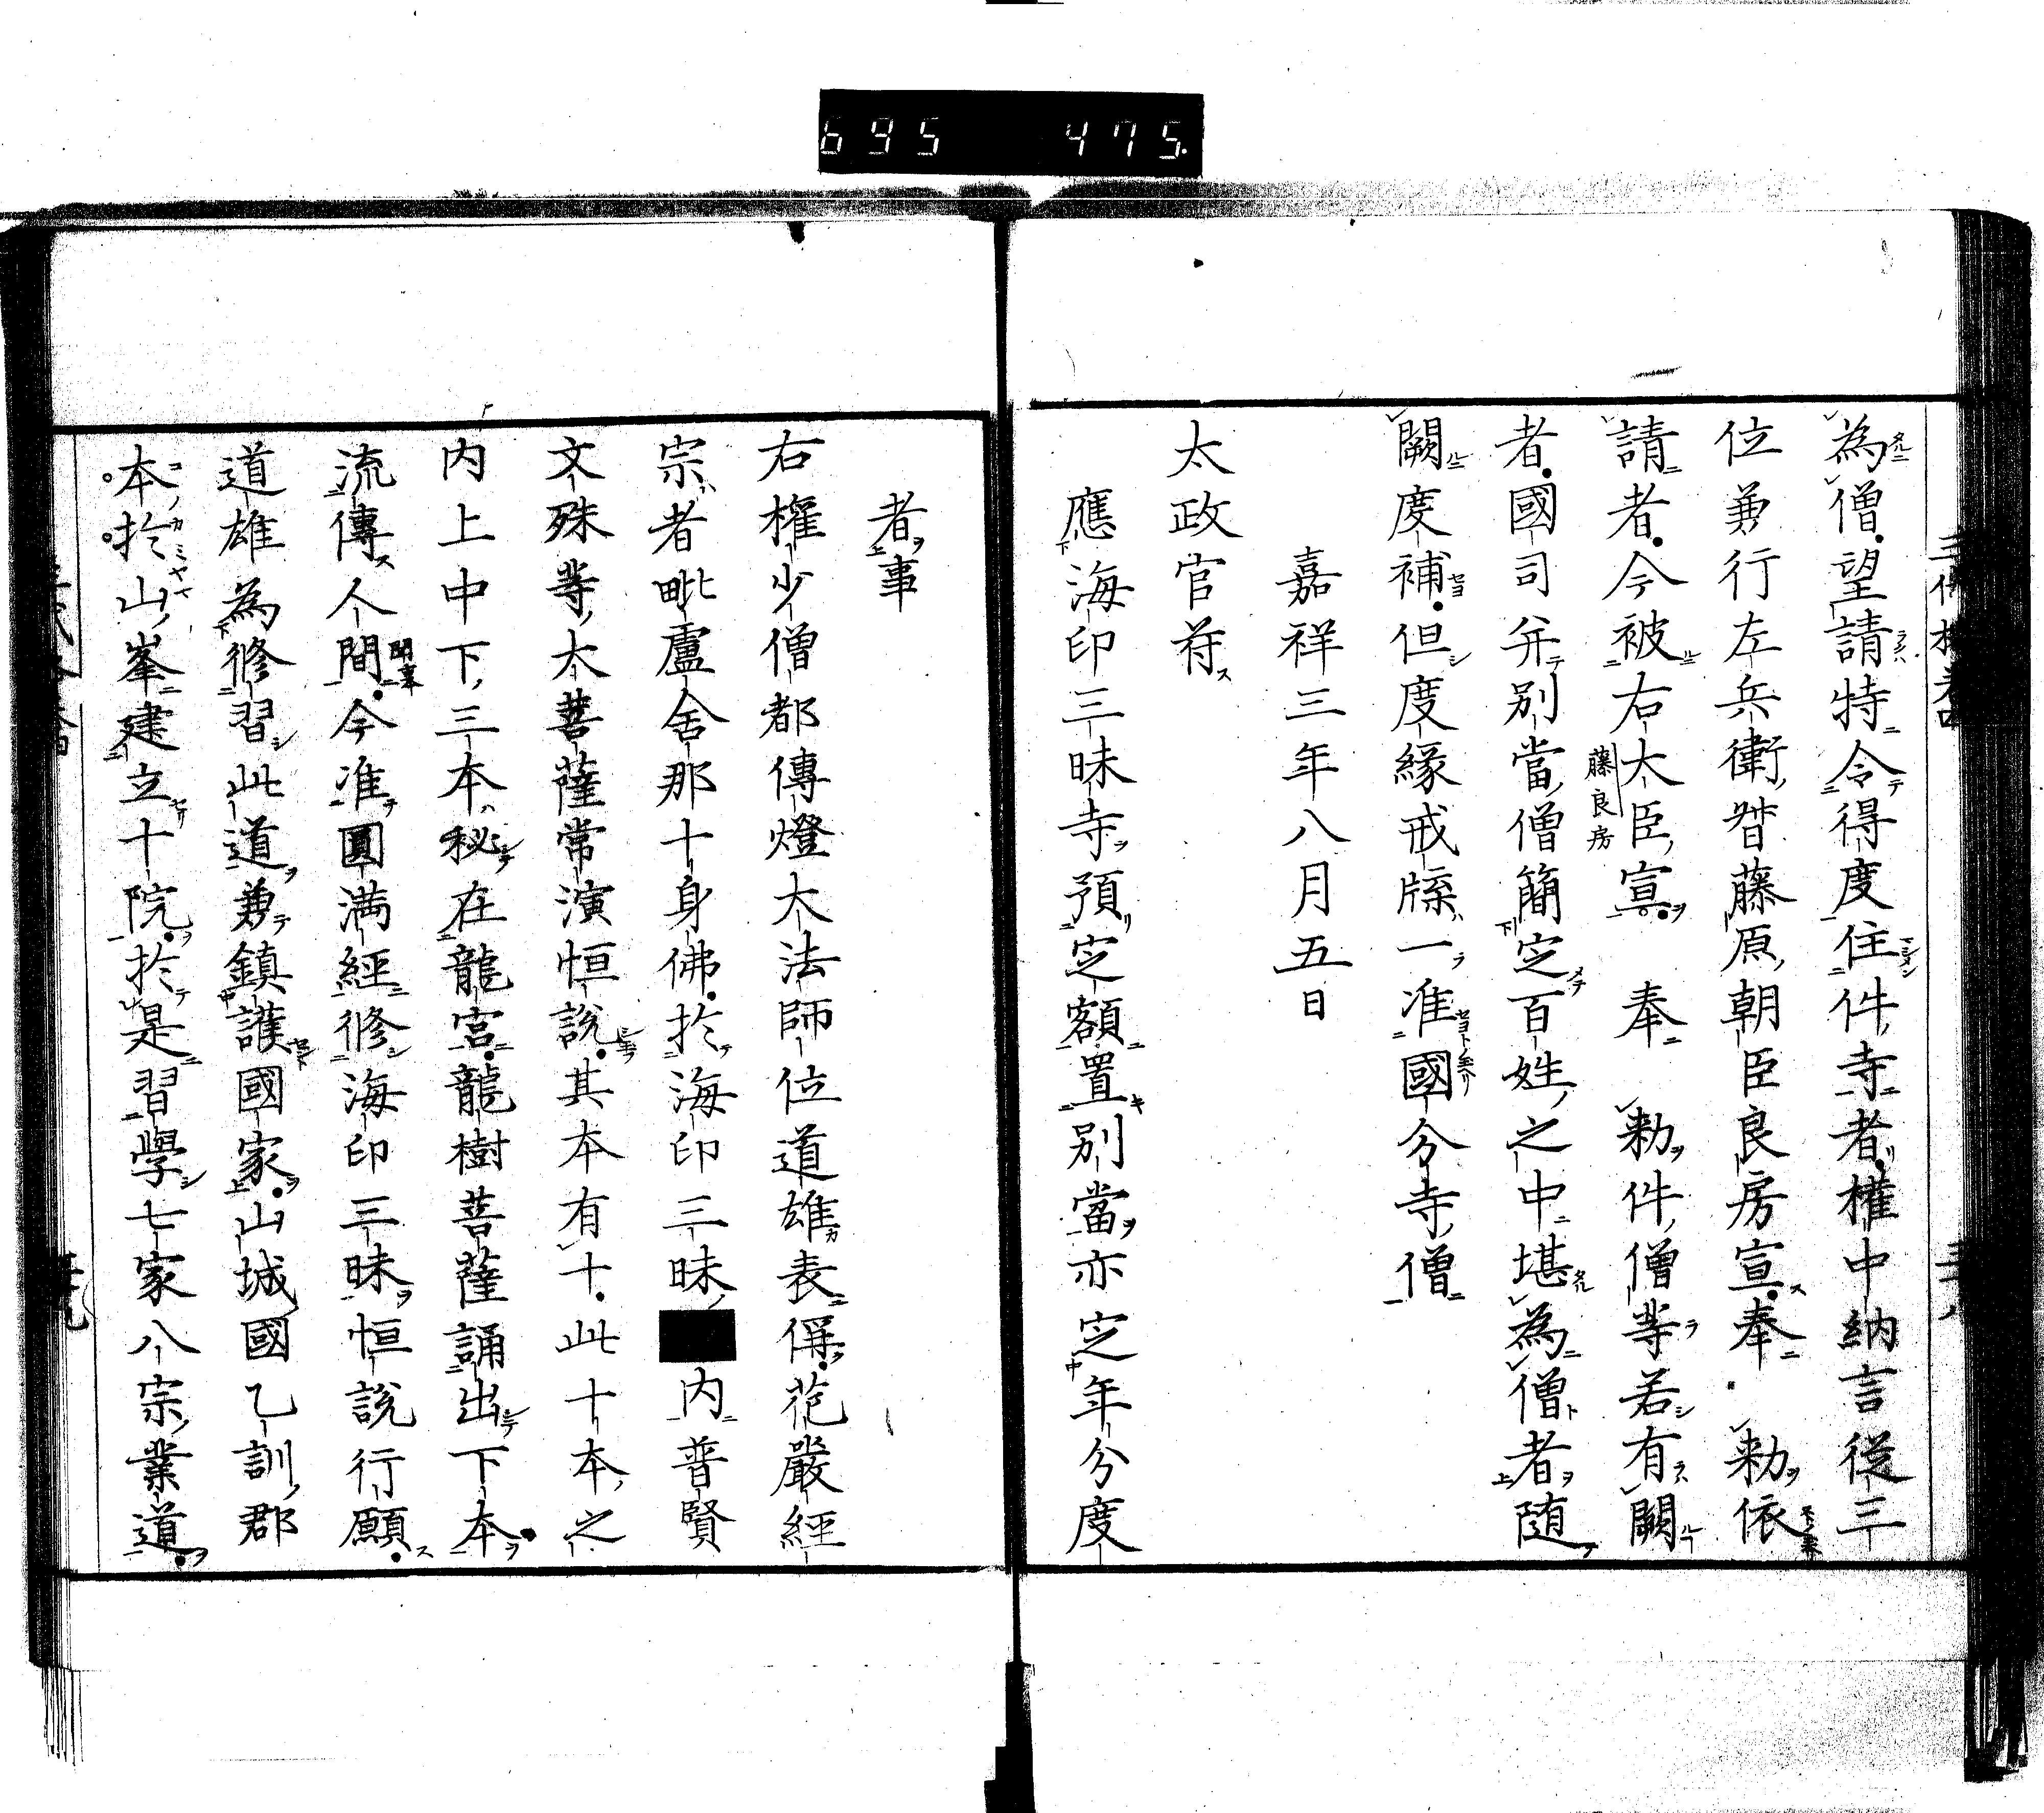 695 475
為僧望請特令得度住件寺者權中納言従三
位兼行左兵衛督藤原朝臣良房宣奉 勅依
請者今被右大臣宣 奉 勅件僧等若有闕
藤良房
者國司并別當僧簡定百姓之中堪為僧者随
闕度補但度緣戒牒一准國分寺僧
嘉祥三年八月五日
太政官符
應海印三昧寺預定額置別當亦定年分度
者事
右權少僧都傳燈大法師位道雄表偁花嚴經
宗者毗盧舍那十身佛於海印三昧■内普賢
文殊等大菩薩常演恒說其本有十此十本之
内上中下三本秘在龍宮龍樹菩薩誦出下本
流傳人間今准圓滿經修海印三昧恒說行願
道雄為修習此道兼鎮護國家山城國乙訓郡
本於山峯建立十院於是習學七家八宗業道